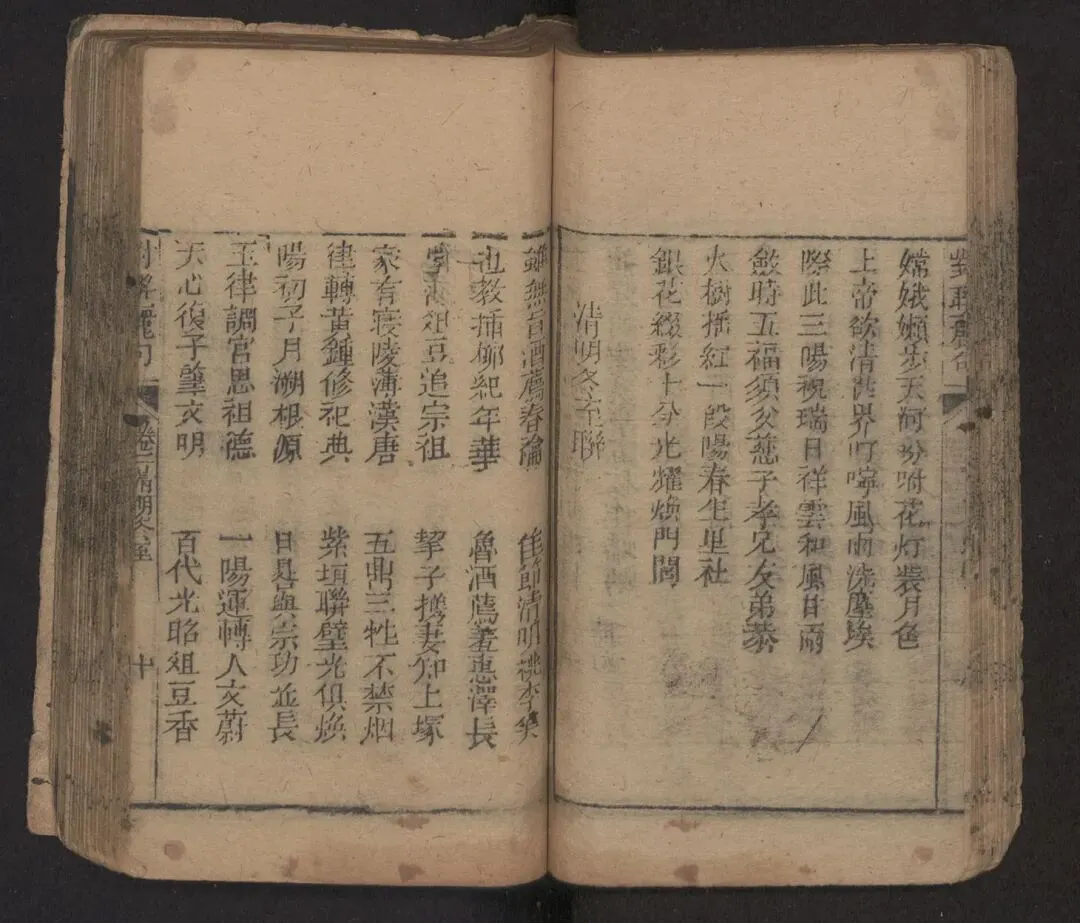 對聯麗句
嫦娥嬾步天河吩咐花灯裝月色
上帝欲清世界叮嚀風雨洗塵埃
際此三陽祝瑞日祥雲和風甘雨
斂時五福須父慈子孝兄友弟恭
火樹搖紅一段陽春生里社
銀花綴彩十分光耀煥門閭
清明冬至聯
雖無旨酒薦春淪 佳節清明桃李笑
也教插柳紀年華 魯酒薦羞惠澤長
俎豆追宗祖 挈子携妻仰上塚
家有寝陵薄漢唐 五鼎三牲不禁烟
律轉黃鍾修祀典 紫垣聯璧光俱煥
陽初子月溯根源 日晷與宗功並長
玉律調宮思祖德 一陽運轉人文蔚
天心復子肇文明 百代光昭俎豆香
麗句 卷二 清明冬至 十